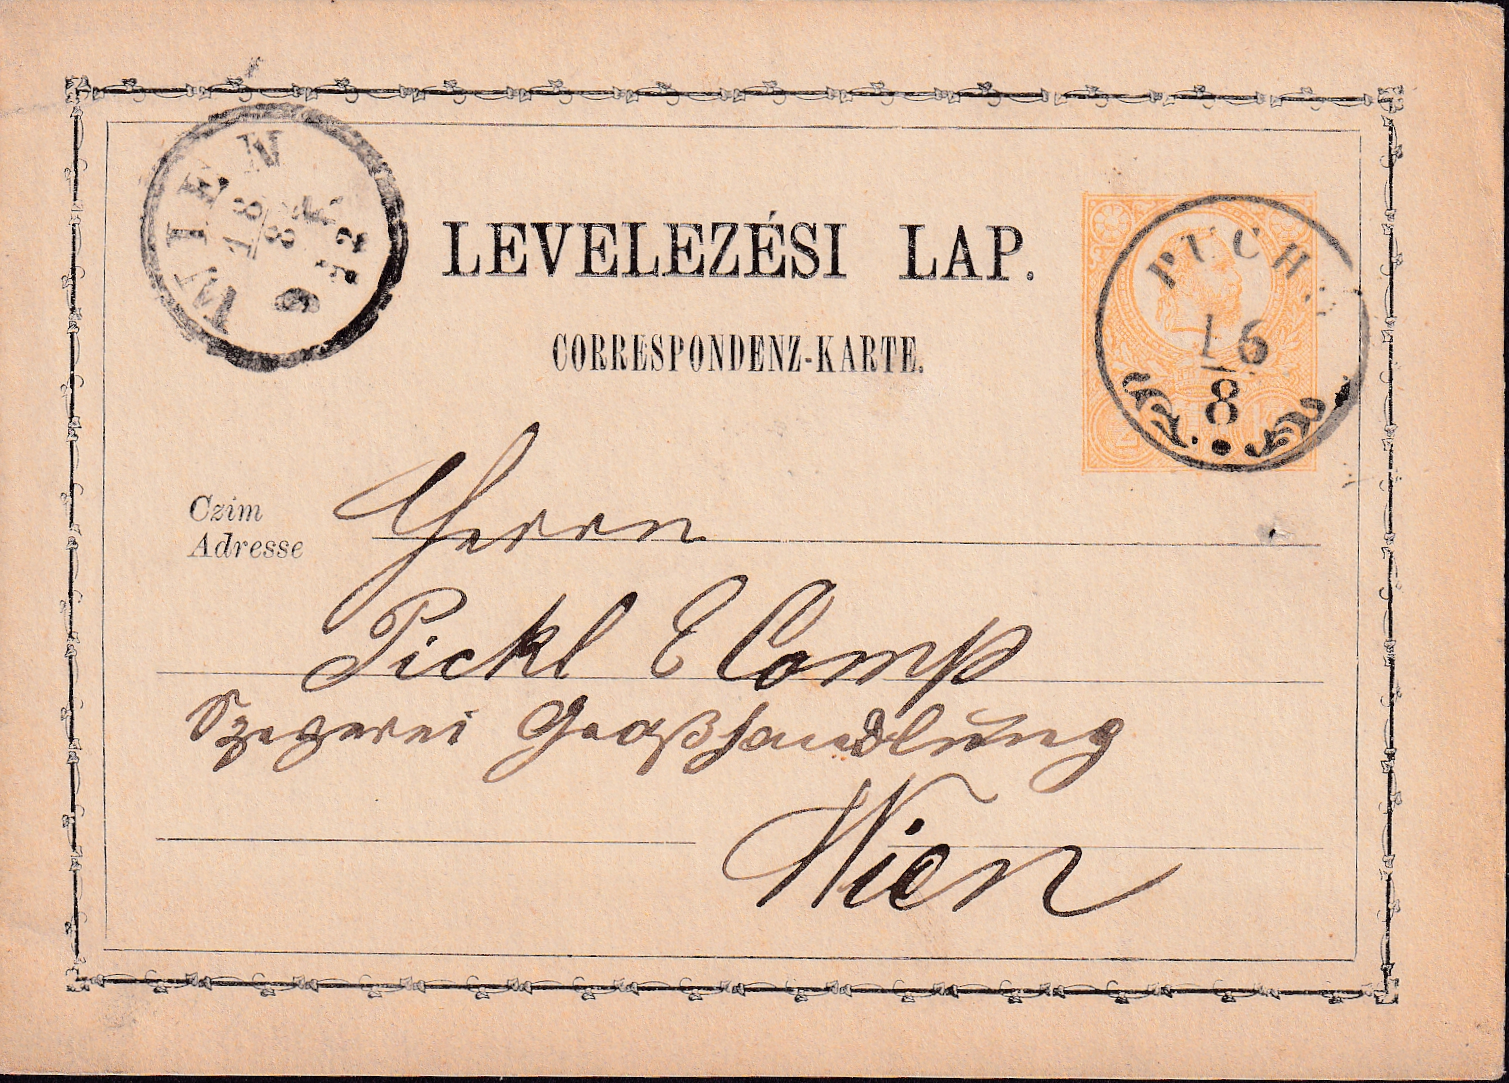 WIEN
18
8
9 F.
LEVELEZÉSI LAP.
CORRESPONDENZ-KARTE.
PUCHÓ
16
8
Czim
Adresse
Herrn
Pickl & Comp
Spezerei Großhandlung
Wien